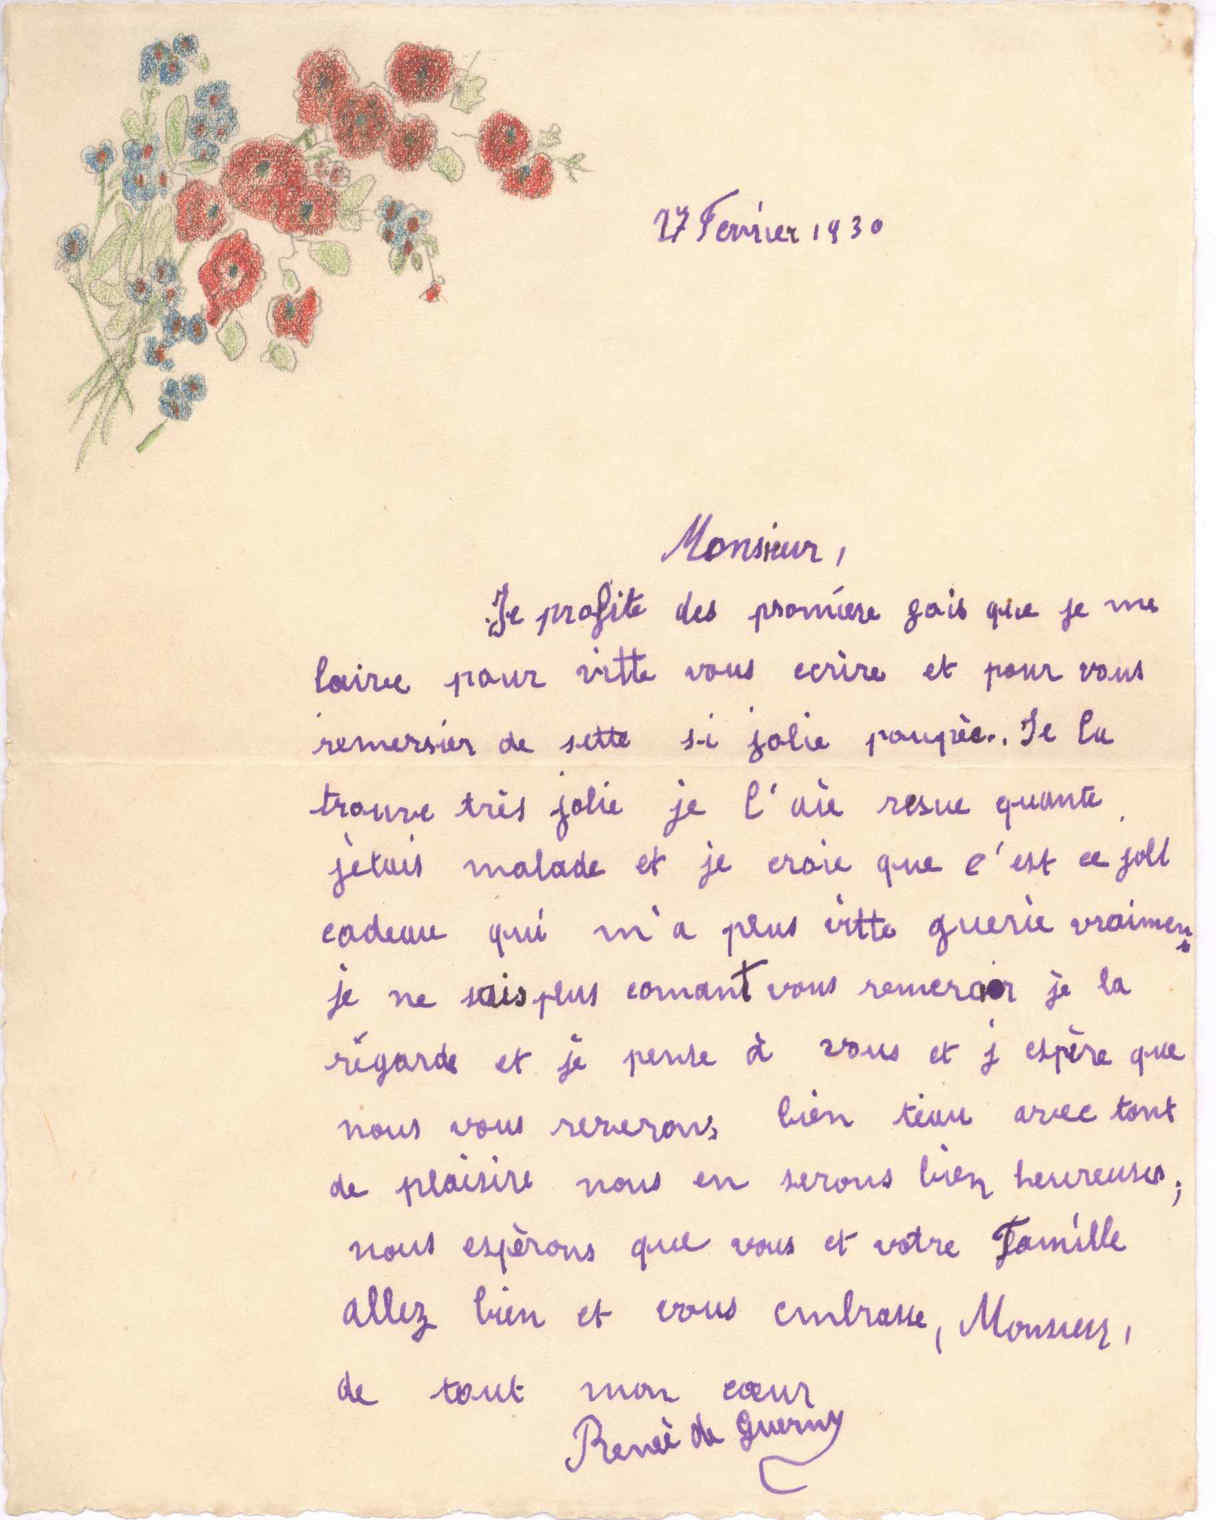 27 Fevrier 1930
Monsieur,
Je profite des promiere fois que je me
laive pour vitte vous ecrire et pour vous
remersier de sette si jolie poupèe. Je la
trouve très jolie je l'aie resue quante
jètais malade et je croie que c'est ce joli
cadeau qui m'a plus vitte guerie vraiment
je ne sais plus comant vous remercier je la
régarde et je pense à vous et j espère que
nous vous reverons bien avec tout
de plaisire nous en serons bien heureuses,
nous espèrons que vous et votre Famille
allez bien et vous embrasse, Monsieur,
de tout mon cœur
Renée de Guerny